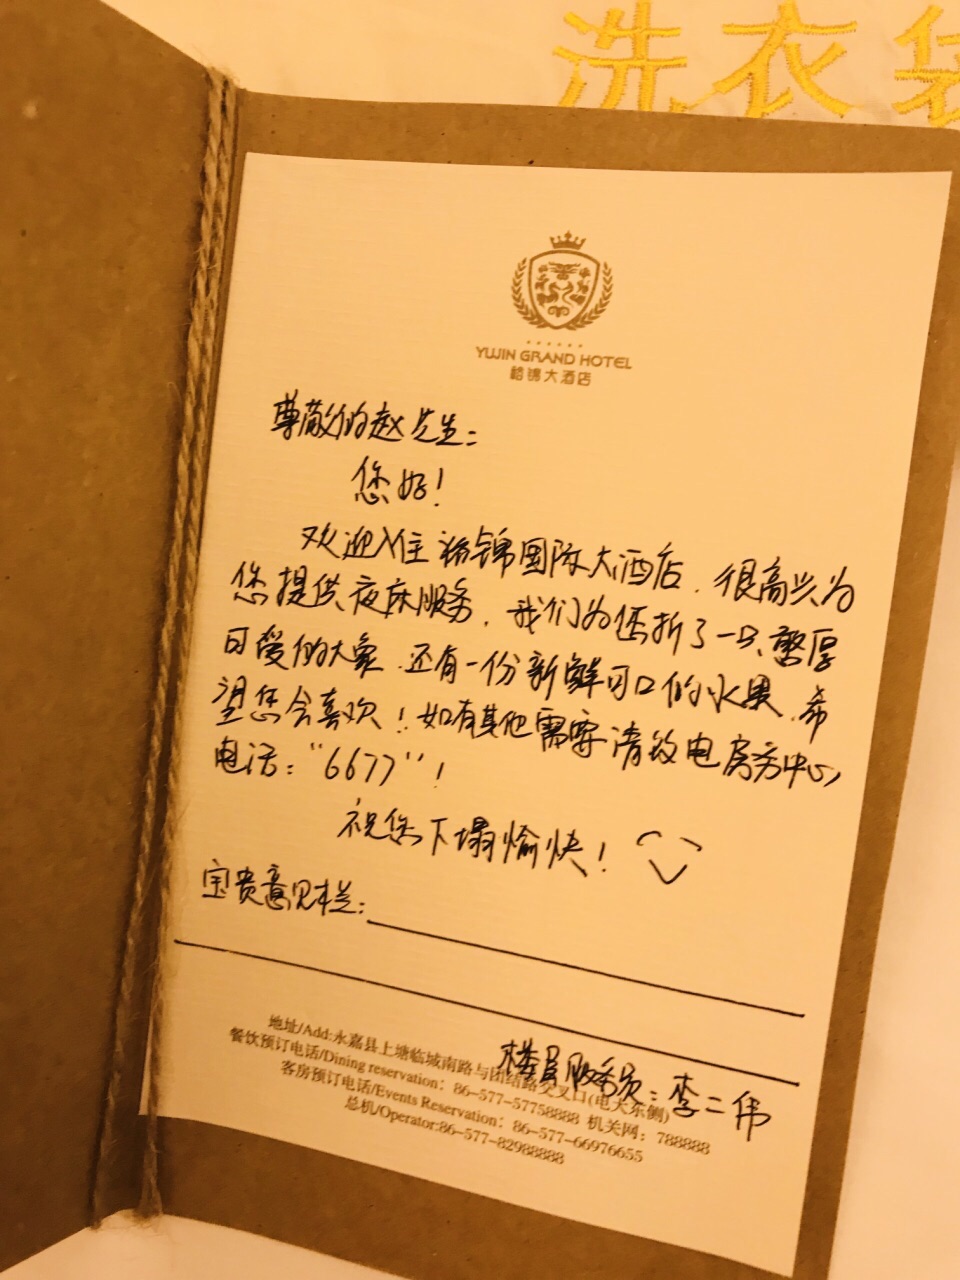 洗衣袋
YUJIN GRAND HOTEL
裕锦大酒店
尊敬的赵先生：
您好！
欢迎入住裕锦国际大酒店，很高兴为
您提供夜床服务，我们为您折了一只憨厚
可爱的大象，还有一份新鲜可口的水果，希
望您会喜欢！如有其他需要请致电房务中心，
电话：“6677”！
祝您下塌愉快！
宝贵意见栏：
楼层服务员：李二伟
地址/Add:永嘉县上塘临城南路与团结路交叉口(电大东侧)
餐饮预订电话/Dining reservation：86-577-57758888 机关网：788888
客房预订电话/Events Reservation：86-577-66976655
总机/Operator:86-577-82988888